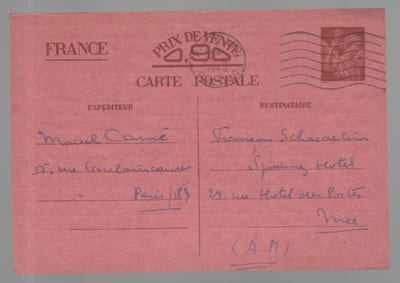 FRANCE
PRIX DE VENTE
0,90
CARTE POSTALE
EXPÉDITEUR
Marcel Carné
5, rue Caulaincourt
Paris/18e
DESTINATAIRE
François
Sporting Hotel
24 rue Hotel des Postes
Nice
(A.M)